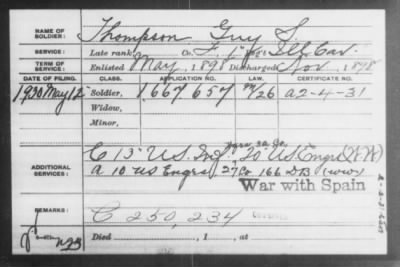 NAME OF SOLDIER: Thompson Guy S.
SERVICE: Late rank, Co. F. 1" Ill. Cav.
TERM OF SERVICE: Enlisted May, 1898 Discharged Nov., 1898
DATE OF FILING. CLASS. APPLICATION NO. CERTIFICATE NO.
1930 May 12 Soldier, 1667657 A2-4-31
Widow,
Minor,
C 13" U.S. Inf 20" U.S. Engrs (N.A.)
ADDITIONAL SERVICES: A 10 US Engrs 27 Co 166 DB (WW)
War with Spain
REMARKS: C 250,234
Died, 1, at